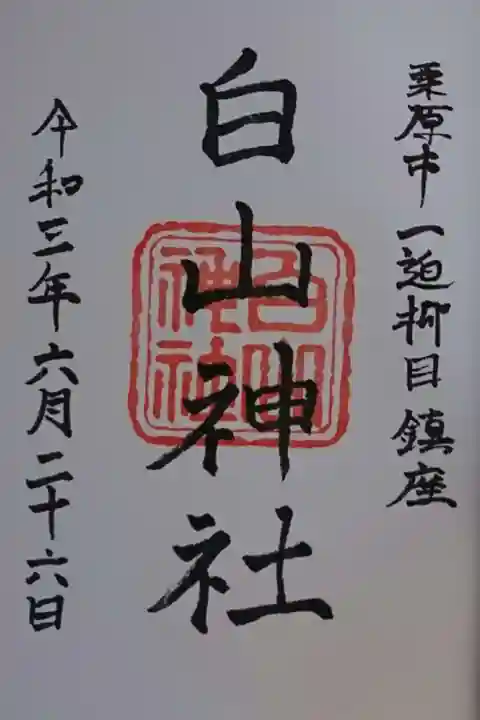 栗原市一迫柳目鎮座
白山神社
白山神社
令和三年六月二十六日